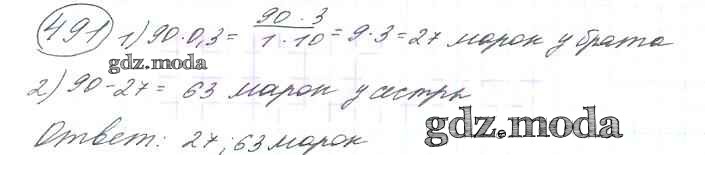 491 1) 90·0,3 = 90·3/1·10 = 9·3 = 27 марок у брата
gdz.moda
2) 90-27 = 63 марок у сестры
gdz.moda
Ответ: 27; 63 марок